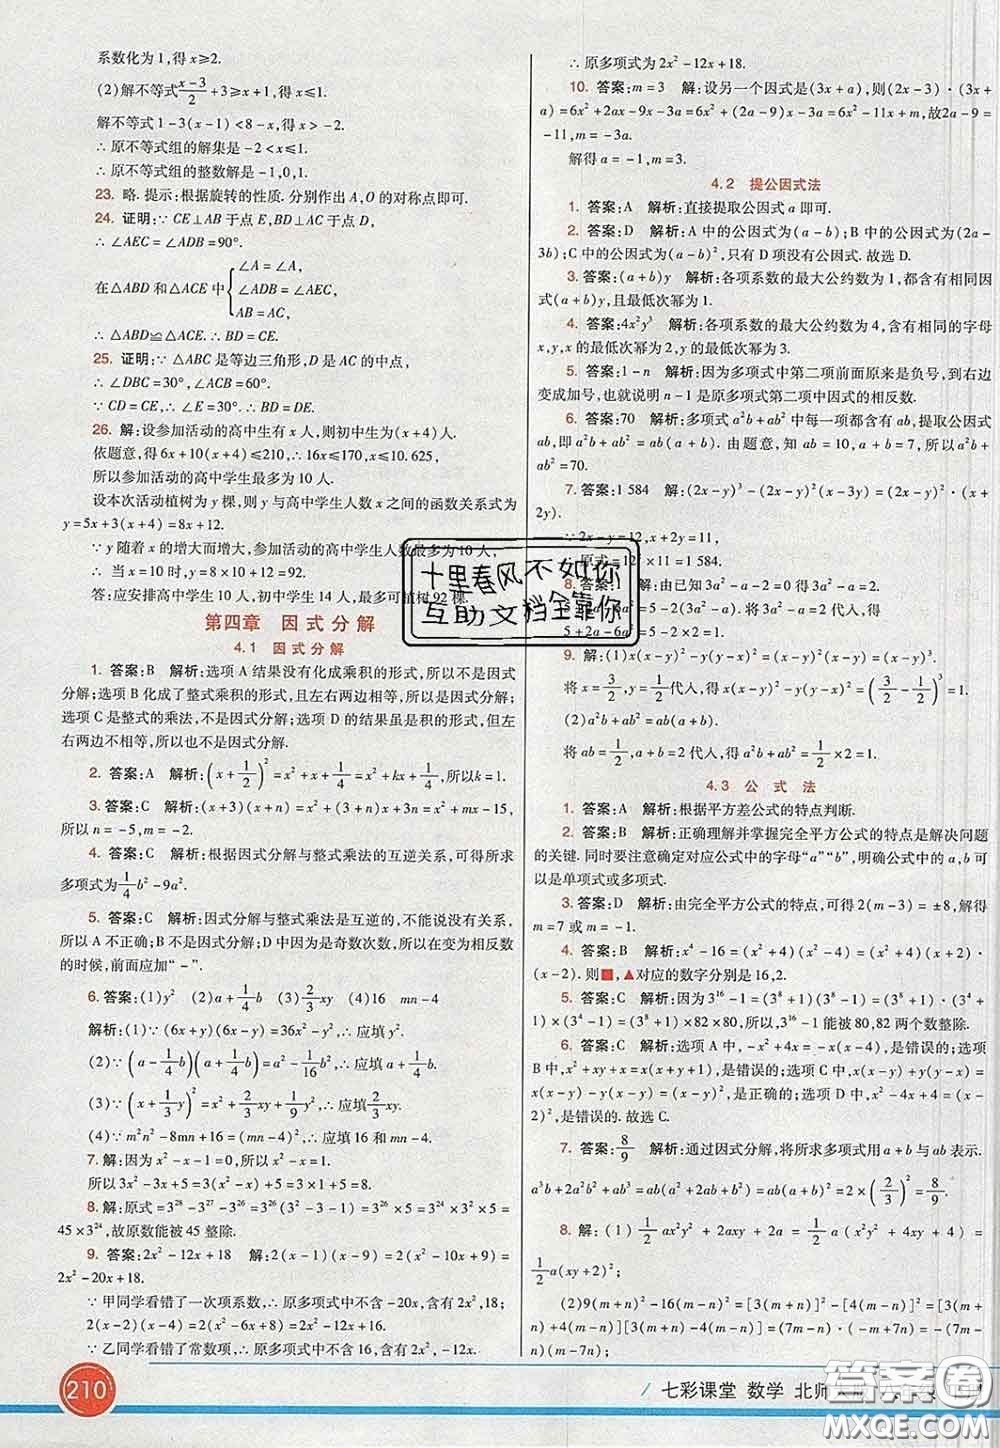 系数化为1,得x≥2.
(2)解不等式(x-3)/2+3≥x+1,得x≤1.
解不等式1-3(x-1)<8-x,得x>-2.
∴原不等式组的解集是-2<x≤1.
∴原不等式组的整数解为-1,0,1.
23. 略. 提示:根据旋转的性质. 分别作出A,O的对称点即可.
24. 证明:∵CE⊥AB于点E,BD⊥AC于点D,
∴∠AEC=∠ADB=90°.
在△ABD和△ACE中{∠A=∠A,
∠ADB=∠AEC,
AB=AC,
∴△ABD≌△ACE.∴BD=CE.
25. 证明:∵△ABC是等边三角形,D是AC的中点,
∴∠DBC=30°,∠ACB=60°.
∵CD=CE,∴∠E=30°.
∴∠DBC=∠E.∴BD=DE.
26. 解:设参加活动的高中生有x人,则初中生有(x+4)人.
依题意,得6x+10(x+4)≤210,∴16x≤170,x≤10.625,
所以参加活动的高中学生最多为10人.
设本次活动植树为y棵,则y与高中学生人数x之间的函数关系式为
y=5x+3(x+4)=8x+12.
∵y随着x的增大而增大,参加活动的高中学生人数最多为10人,
∴当x=10时,y=8×10+12=92.
答:应安排高中学生10人,初中学生14人,最多可植树92棵.
第四章 因式分解
4.1 因式分解
1. 答案:B 解析:选项A结果没有化成乘积的形式,所以不是因式
分解;选项B化成了整式乘积的形式,且左右两边相等,所以是因式分解;
选项C是整式的乘法,不是因式分解;选项D的结果虽是积的形式,但左
右两边不相等,所以也不是因式分解.
2. 答案:A 解析:(x+1/2)²=x²+x+1/4=x²+kx+1/4,所以k=1.
3. 答案:C 解析:(x+3)(x+n)=x²+(3+n)x+3n=x²+mx-15,
所以n=-5,m=-2.
4. 答案:C 解析:根据因式分解与整式乘法的互逆关系,可得所求
多项式为1/4b²-9a².
5. 答案:C 解析:因式分解与整式乘法是互逆的,不能说没有关系,
所以A不正确;B不是因式分解;D中因为是奇数次数,所以在变为相反数
的时候,前面应加“-”.
6. 答案:(1)y² (2)a+1/4b (3)2/3xy (4)16 mn-4
解析:(1)∵(6x+y)(6x-y)=36x²-y²,∴应填y².
(2)∵(a-1/4b)(a+1/4b)=a²-1/16b²,∴应填a+1/4b.
(3)∵(x+1/3y)²=x²+2/3xy+1/9y²,∴应填2/3xy.
(4)∵m²n²-8mn+16=(mn-4)²,∴应填16和mn-4.
7. 解:因为x²-x-1=0,所以x²-x=1.
所以3x²-3x+5=3(x²-x)+5=3×1+5=8.
8. 解:原式=3²⁸-3²⁷-3²⁶=3²⁶(3²-3-1)=3²⁶×5=3²⁴×3²×5=
45×3²⁴,故原数能被45整除.
9. 答案:2x²-12x+18 解:2(x-1)(x-9)=2(x²-10x+9)=
2x²-20x+18.
∵甲同学看错了一次项系数,∴原多项式中不含-20x,含2x²,18;
2(x-2)(x-4)=2(x²-6x+8)=2x²-12x+16.
∵乙同学看错了常数项,∴原多项式中不含16,含2x²,-12x.
∴原多项式为2x²-12x+18.
10. 答案:m=3 解:设另一个因式是(3x+a),则(2x-3)·(3x+
a)=6x²+2ax-9x-3a=6x²+(2a-9)x-3a=6x²-11x+m,故2a-9=
-11,m=-3a.
解得a=-1,m=3.
4.2 提公因式法
1. 答案:A 解析:直接提取公因式a即可.
2. 答案:D 解析:A中的公因式为(a-b);B中的公因式为(2a-
3b);C中的公因式为(a-b)²,只有D项没有公因式. 故选D.
3. 答案:(a+b)y 解析:各项系数的最大公约数为1,都含有相同因
式(a+b)y,且最低次幂为1.
4. 答案:4x²y³ 解析:各项系数的最大公约数为4,含有相同的字母
x,y,x的最低次幂为2,y的最低次幂为3.
5. 答案:1-n 解析:因为多项式中第二项前面原来是负号,到右边
变成加号,也就说明n-1是原多项式第二项中因式的相反数.
6. 答案:70 解析:多项式a²b+ab²中每一项都含有ab,提取公因式
ab,即a²b+ab²=ab(a+b). 由题意,知ab=10,a+b=7,所以a²b+
ab²=70.
7. 答案:1 584 解:(2x-y)³-(2x-y)²(x-3y)=(2x-y)²·(x+
2y).
∵2x-y=12,x+2y=11,
∴原式=12²×11=1 584.
由已知3a²-a-2=0,得
5+2a-6a²=
9. 解:(1)x(x-y)²-y(x-y)²=(x-y)²(x-y)=(x-y)³.
将x=3/2,y=1/2代入,得x(x-y)²-y(x-y)²=(3/2-1/2)³=1.
(2)a²b+ab²=ab(a+b).
将ab=1/2,a+b=2代入,得a²b+ab²=1/2×2=1.
4.3 公式法
1. 答案:A 解析:根据平方差公式的特点判断.
2. 答案:B 解析:正确理解并掌握完全平方公式的特点是解决问题
的关键. 同时要注意确定对应公式中的字母“a”“b”,明确公式中的a,b可
以是单项式或多项式.
3. 答案:D 解析:由完全平方公式的特点,可得2(m-3)=±8,解得
m=7或m=-1.
4. 答案:B 解析:x⁴-16=(x²+4)(x²-4)=(x²+4)(x+2)·
(x-2). 则■,▲对应的数字分别是16,2.
5. 答案:C 解析:因为3¹⁶-1=(3⁸+1)(3⁸-1)=(3⁸+1)·(3⁴
+1)(3⁴-1)=(3⁸+1)×82×80,所以,3¹⁶-1能被80,82两个数整除.
6. 答案:C 解析:选项A中,-x²+4x=-x(x-4),是错误的;选项B
中,x²+xy+x=x(x+y+1),是错误的;选项C中,x(x-y)+y(y-x)=
x(x-y)-y(x-y)=(x-y)²,是正确的;选项D中,x²-4x+4=(x-
2)²,是错误的. 故选C.
7. 答案:8/9 解析:通过因式分解,将所求多项式用a+b与ab表示.
a³b+2a²b²+ab³=ab(a²+2ab+b²)=ab(a+b)²=2×(2/3)²=8/9.
8. 解:(1)1/2ax²y²+2axy+2a=1/2a(x²y²+4xy+4)=
1/2a(xy+2)²;
(2)9(m+n)²-16(m-n)²=[3(m+n)]²-[4(m-n)]²=[3(m+
n)+4(m-n)][3(m+n)-4(m-n)]=(7m-n)·(-m+7n)=-(7m-
n)(m-7n);
210
七彩课堂 数学 北师大版
十里春风不如你
互助文档全靠你
答案圈
MXQE.COM